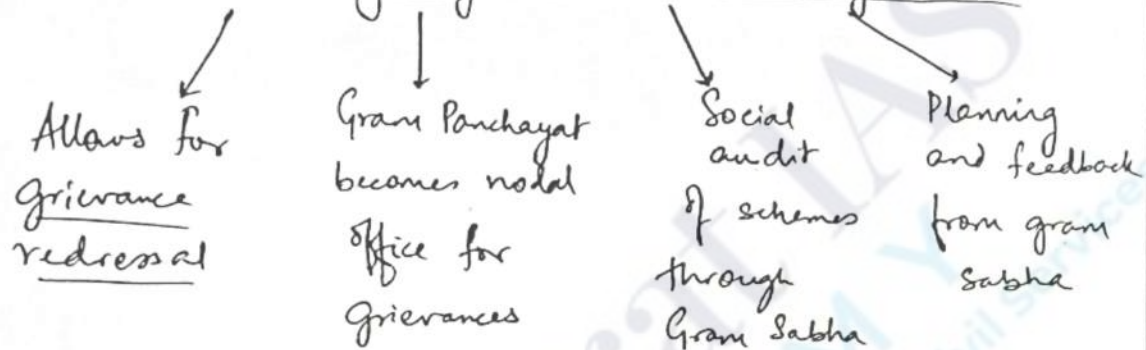 Allows for
grievance
redressal
Gram Panchayat
becomes nodal
office for
grievances
Social
audit
of schemes
through
Gram Sabha
Planning
and feedback
from gram
Sabha
IAS